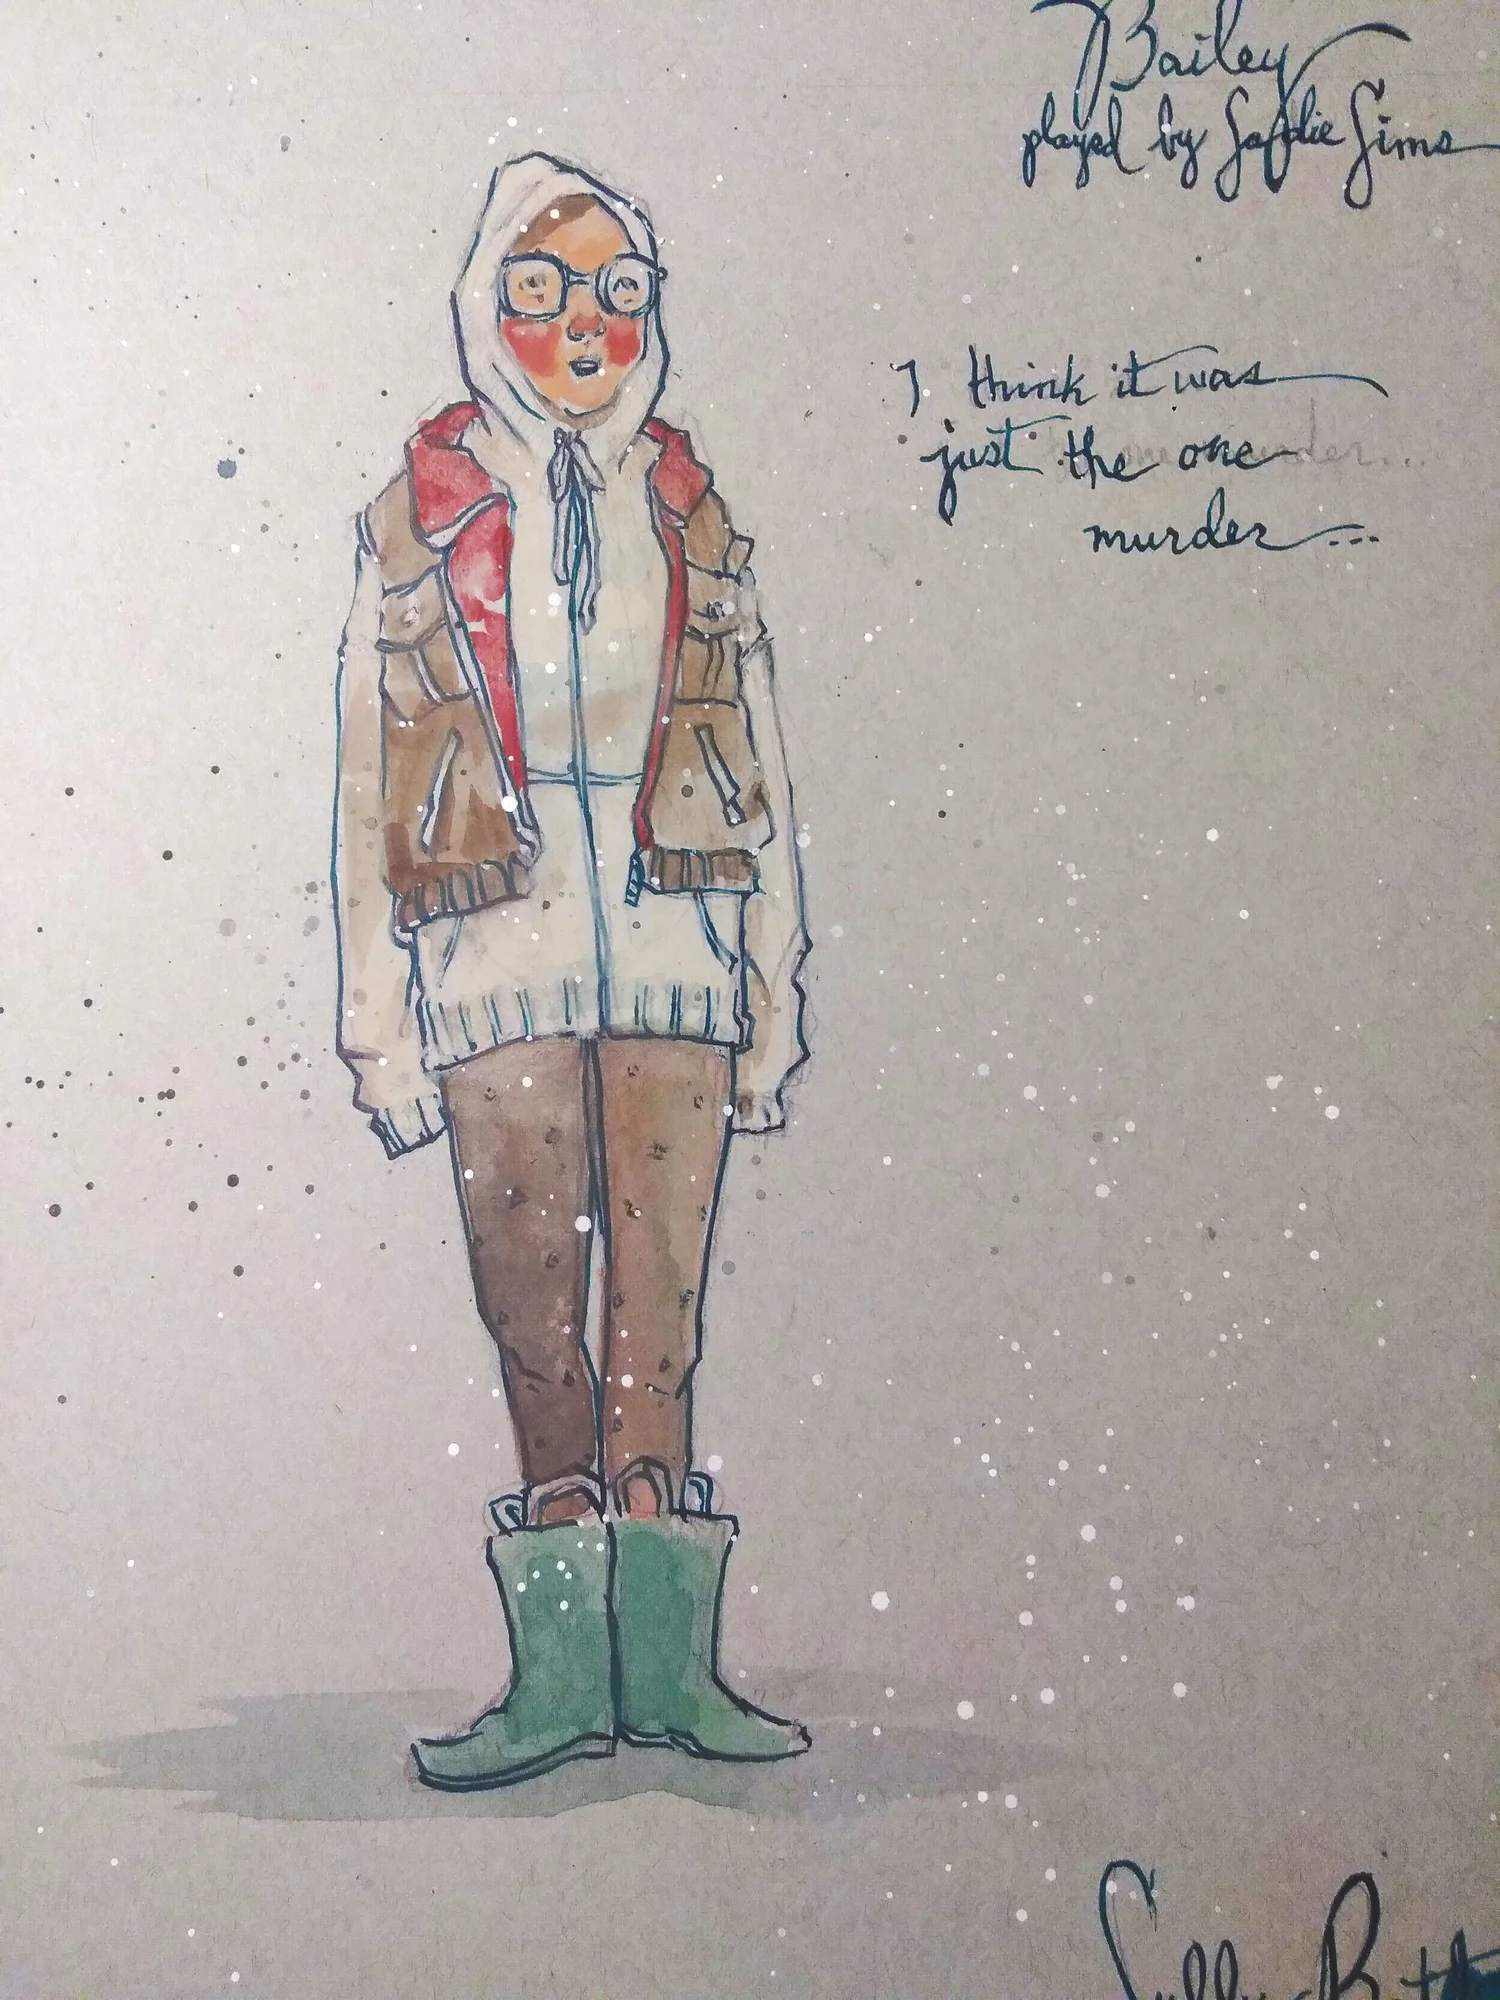 Bailey
played by Sadie Sims
I think it was
just the one
murder...